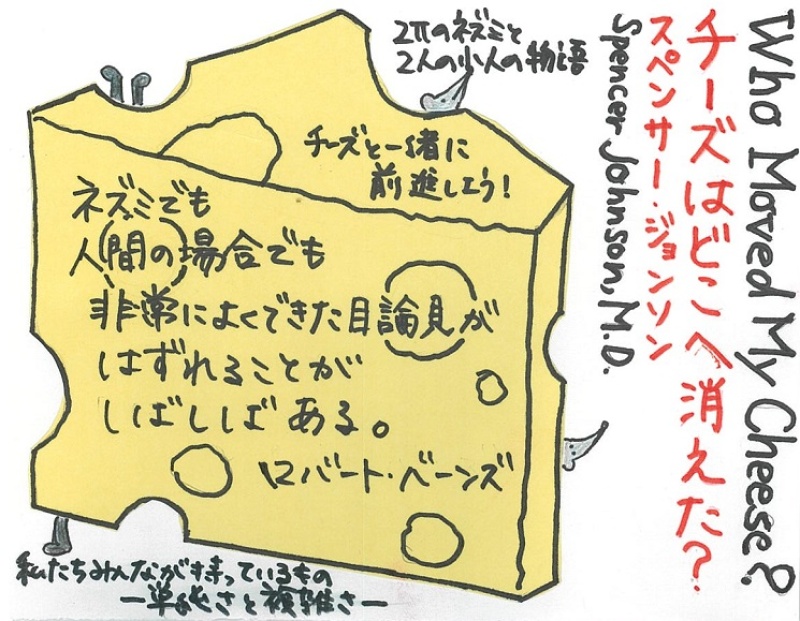 Who Moved My Cheese?
チーズはどこへ消えた?
スペンサー・ジョンソン
Spencer Johnson, M.D.
2匹のネズミと
2人の小人の物語
チーズと一緒に
前進しよう!
ネズミでも
人間の場合でも
非常によくできた目論見が
はずれることが
しばしばある。
ロバート・バーンズ
私たちみんなが持っているもの
—単純さと複雑さ—